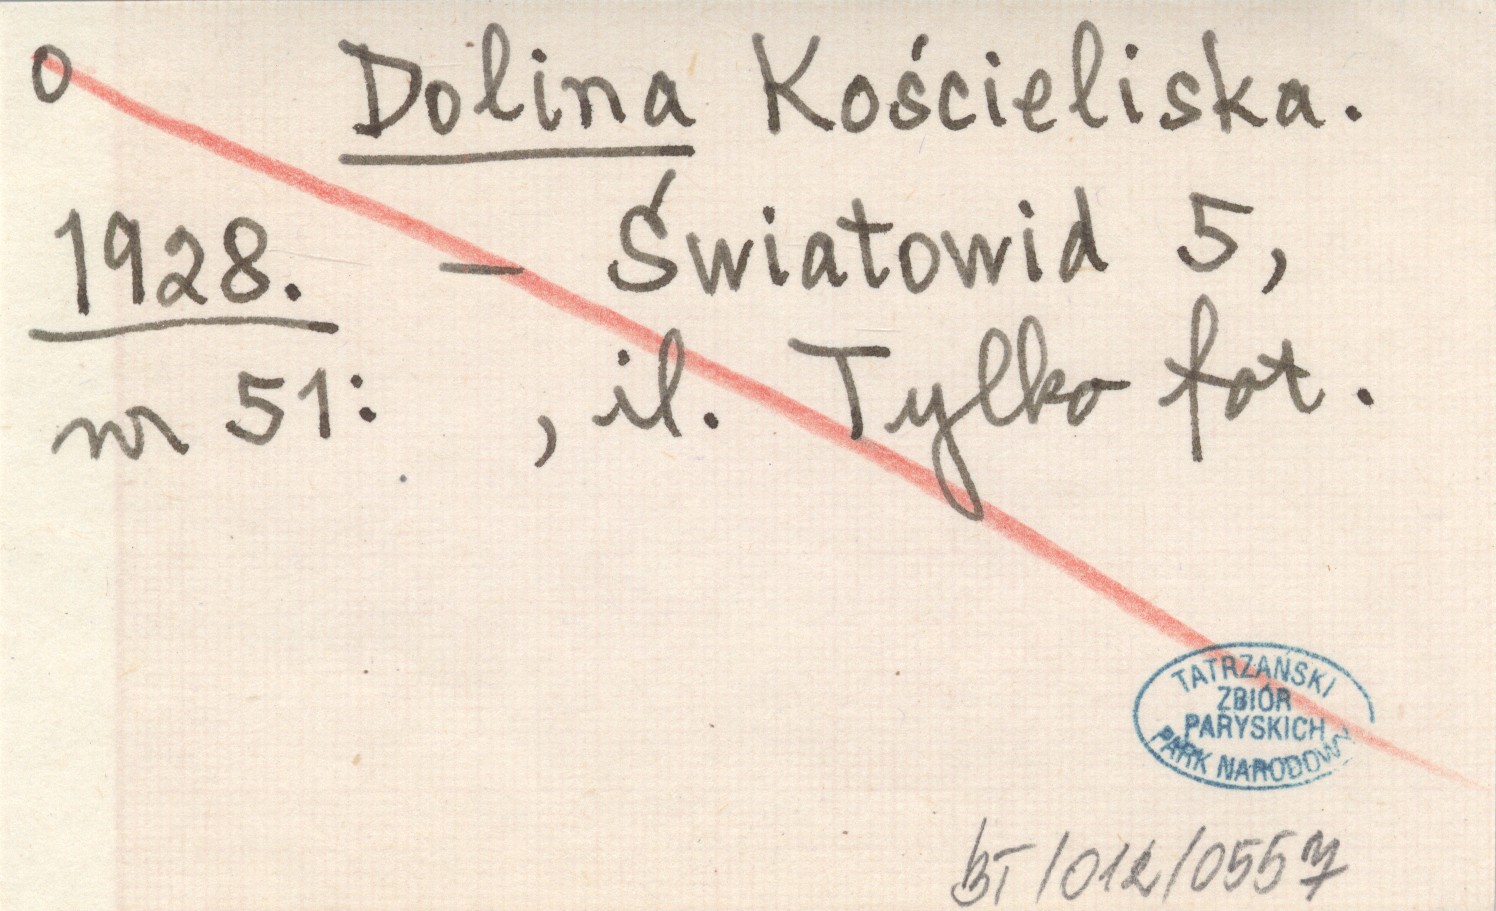 O Dolina Kościeliska.
1928. – Światowid 5,
nr 51: , il. Tylko fot.
TATRZAŃSKI
ZBIÓR
PARYSKICH
PARK NARODOWY
BT/012/0557